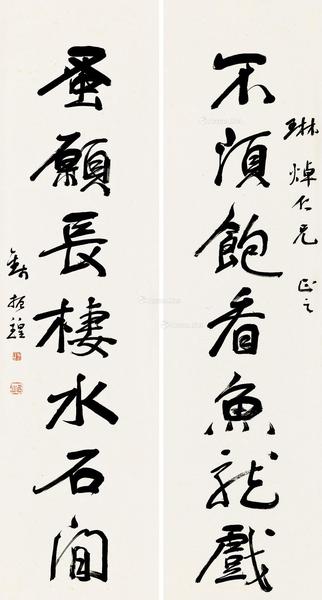 琳焯仁兄 正之
不須飽看魚龍戲
蚤願長棲水石間
錢振鍠